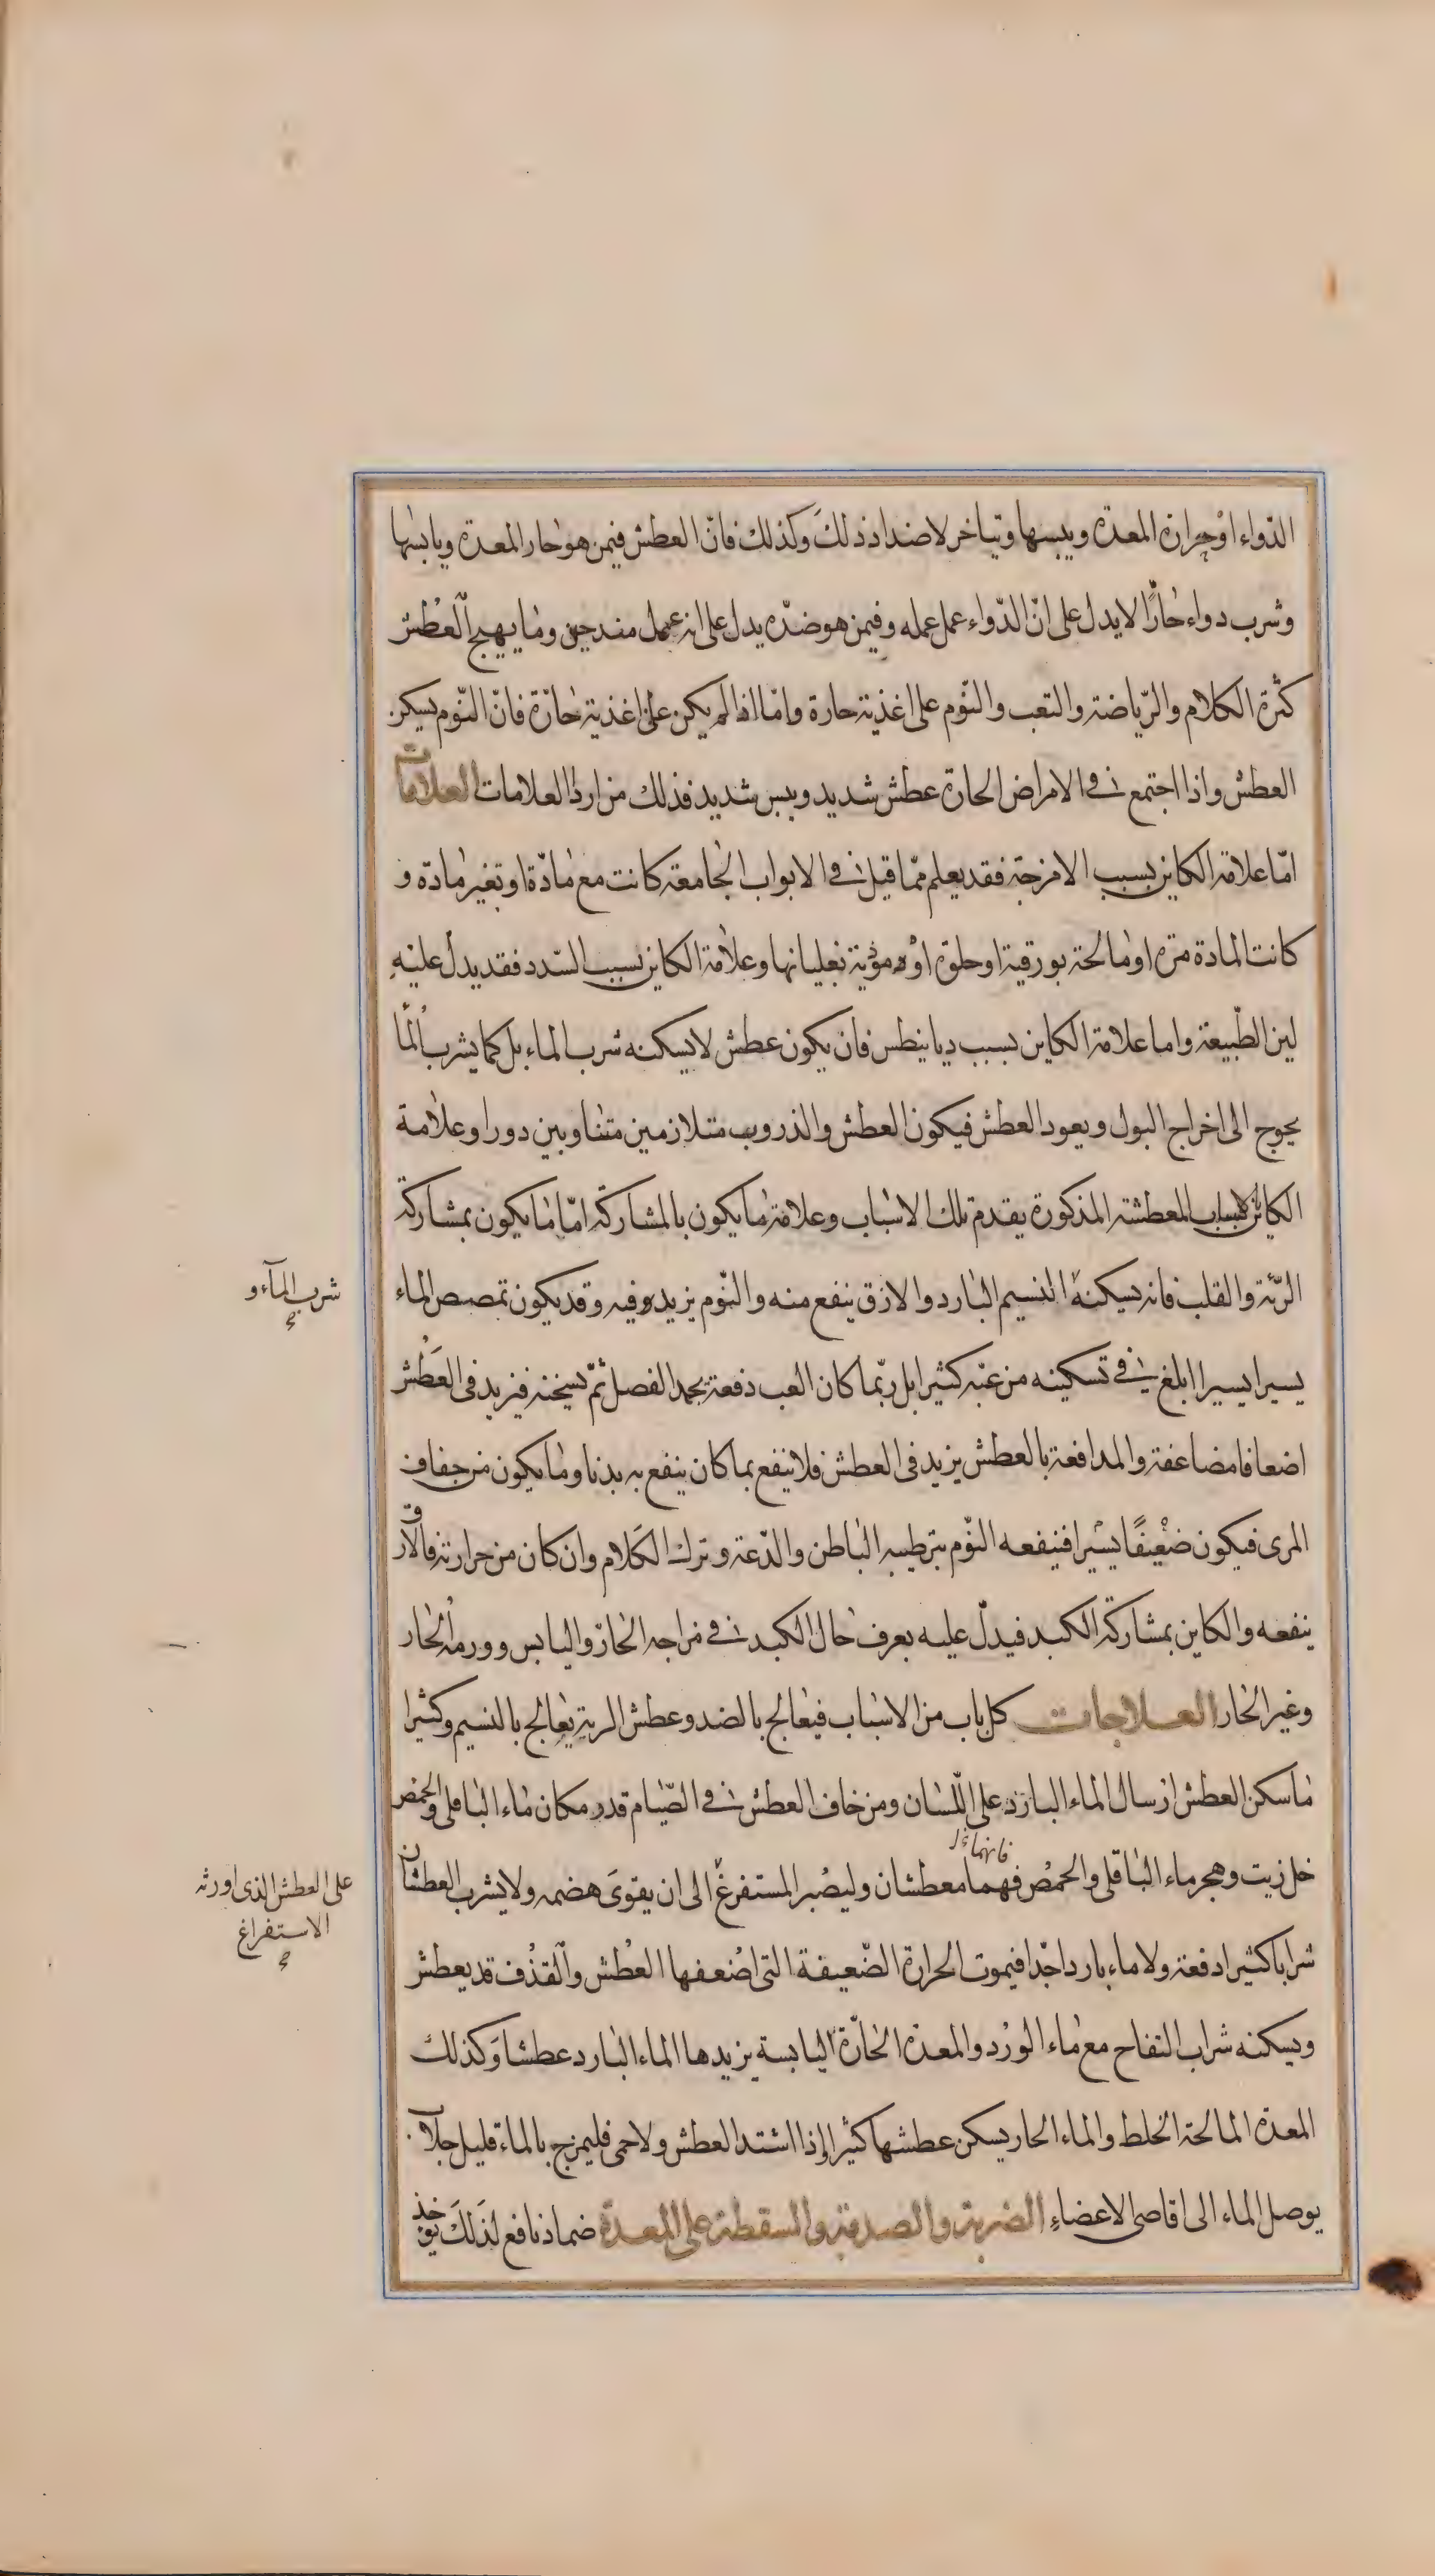 الدّواء او حرارة المعدة ويبسها وتتأخر لاضداد ذلك وكذلك فانّ العطش فيمن هو حار المعدة ويابسها
وشرب دواء حارًّا لا يدل على انّ الدّواء عمل عمله وفيمن هو ضدّه يدل على انه عمل منذ حين وما يهيج العطش
كثرة الكلام والرّياضة والتعب والنّوم على اغذية حارة وامّا اذا لم يكن على اغذية حارّة فانّ النّوم يسكن
العطش واذا اجتمع فى الامراض الحارة عطش شديد ويبس شديد فذلك من اردٔا العلامات العلامات
امّا علامة الكاين بسبب الامزجة فقد يعلم ممّا قيل فى الابواب الجامعة كانت مع مادّة او بغير مادة و
كانت المادة مرة او مالحة بورقية او حلوة او مؤذية بغليانها وعلامة الكاين بسبب السّدد فقد يدل عليه
لين الطّبيعة واما علامة الكاين بسبب ديابيطس فان يكون عطش لا يسكنه شرب الماء بل كما يشرب الماء
يحوج الى اخراج البول ويعود العطش فيكون العطش والذروب متلازمين متناوبين دورا وعلامة
الكاين لاسباب المعطشة المذكورة يقدم تلك الاسباب وعلامة ما يكون بالمشاركة امّا ما يكون بمشاركة
الرّئة والقلب فانه يسكنه النسيم البارد والارق ينفع منه والنّوم يزيده فيه وقد يكون تمصص الماء
شرب المآء و
صح
يسيرا يسيرا ابلغ فى تسكينه من عبّه كثيرا بل ربّما كان العب دفعة يجمد الفصل ثمّ يسخنه فيزيد فى العطش
اضعافا مضاعفة والمدافعة بالعطش يزيد فى العطش فلا ينفع بما كان ينفع به بدنا وما يكون من جفاف
المرى فيكون ضعيفًا يسيرا فينفعه النّوم بترطيبه الباطن والدّعة وترك الكلام وان كان من حرارته فالارق
ينفعه والكاين بمشاركة الكبد فيدلّ عليه بعرف حال الكبد فى مزاجه الحارّ واليابس وورمه الحار
وغير الحار العلاجات كل باب من الاسباب فيعالج بالضد وعطش الرية يعالج بالنسيم وكثيرا
ما سكن العطش ارسال الماء البارد على اللّسان ومن خاف العطش فى الصّيام قدر مكان ماء الباقلى والحمص
خل زيت وهجر ماء الباقلى والحمص فهما معطشان وليصبر المستفرغ الى ان يقوى هضمه ولا يشرب العطشان
فانهما
على العطش الذى اورثه
الاستفراغ
صح
شرابا كثيرا دفعة ولا ماء بارد اجدا فيموت الحرارة الضّعيفة التى اضعفها العطش والقذف قد يعطش
ويسكنه شراب التفاح مع ماء الورد والمعدة الحارّة اليابسة يزيدها الماء البارد عطشا وكذلك
المعدة المالحة الخلط والماء الحار يسكن عطشها كثيرا اذا اشتد العطش ولا حمى فليمزج بالماء قليل جلاب
يوصل الماء الى اقاصى الاعضاء الضربة والصدمة والسقطة على المعدة ضماد نافع لذلك يؤخذ